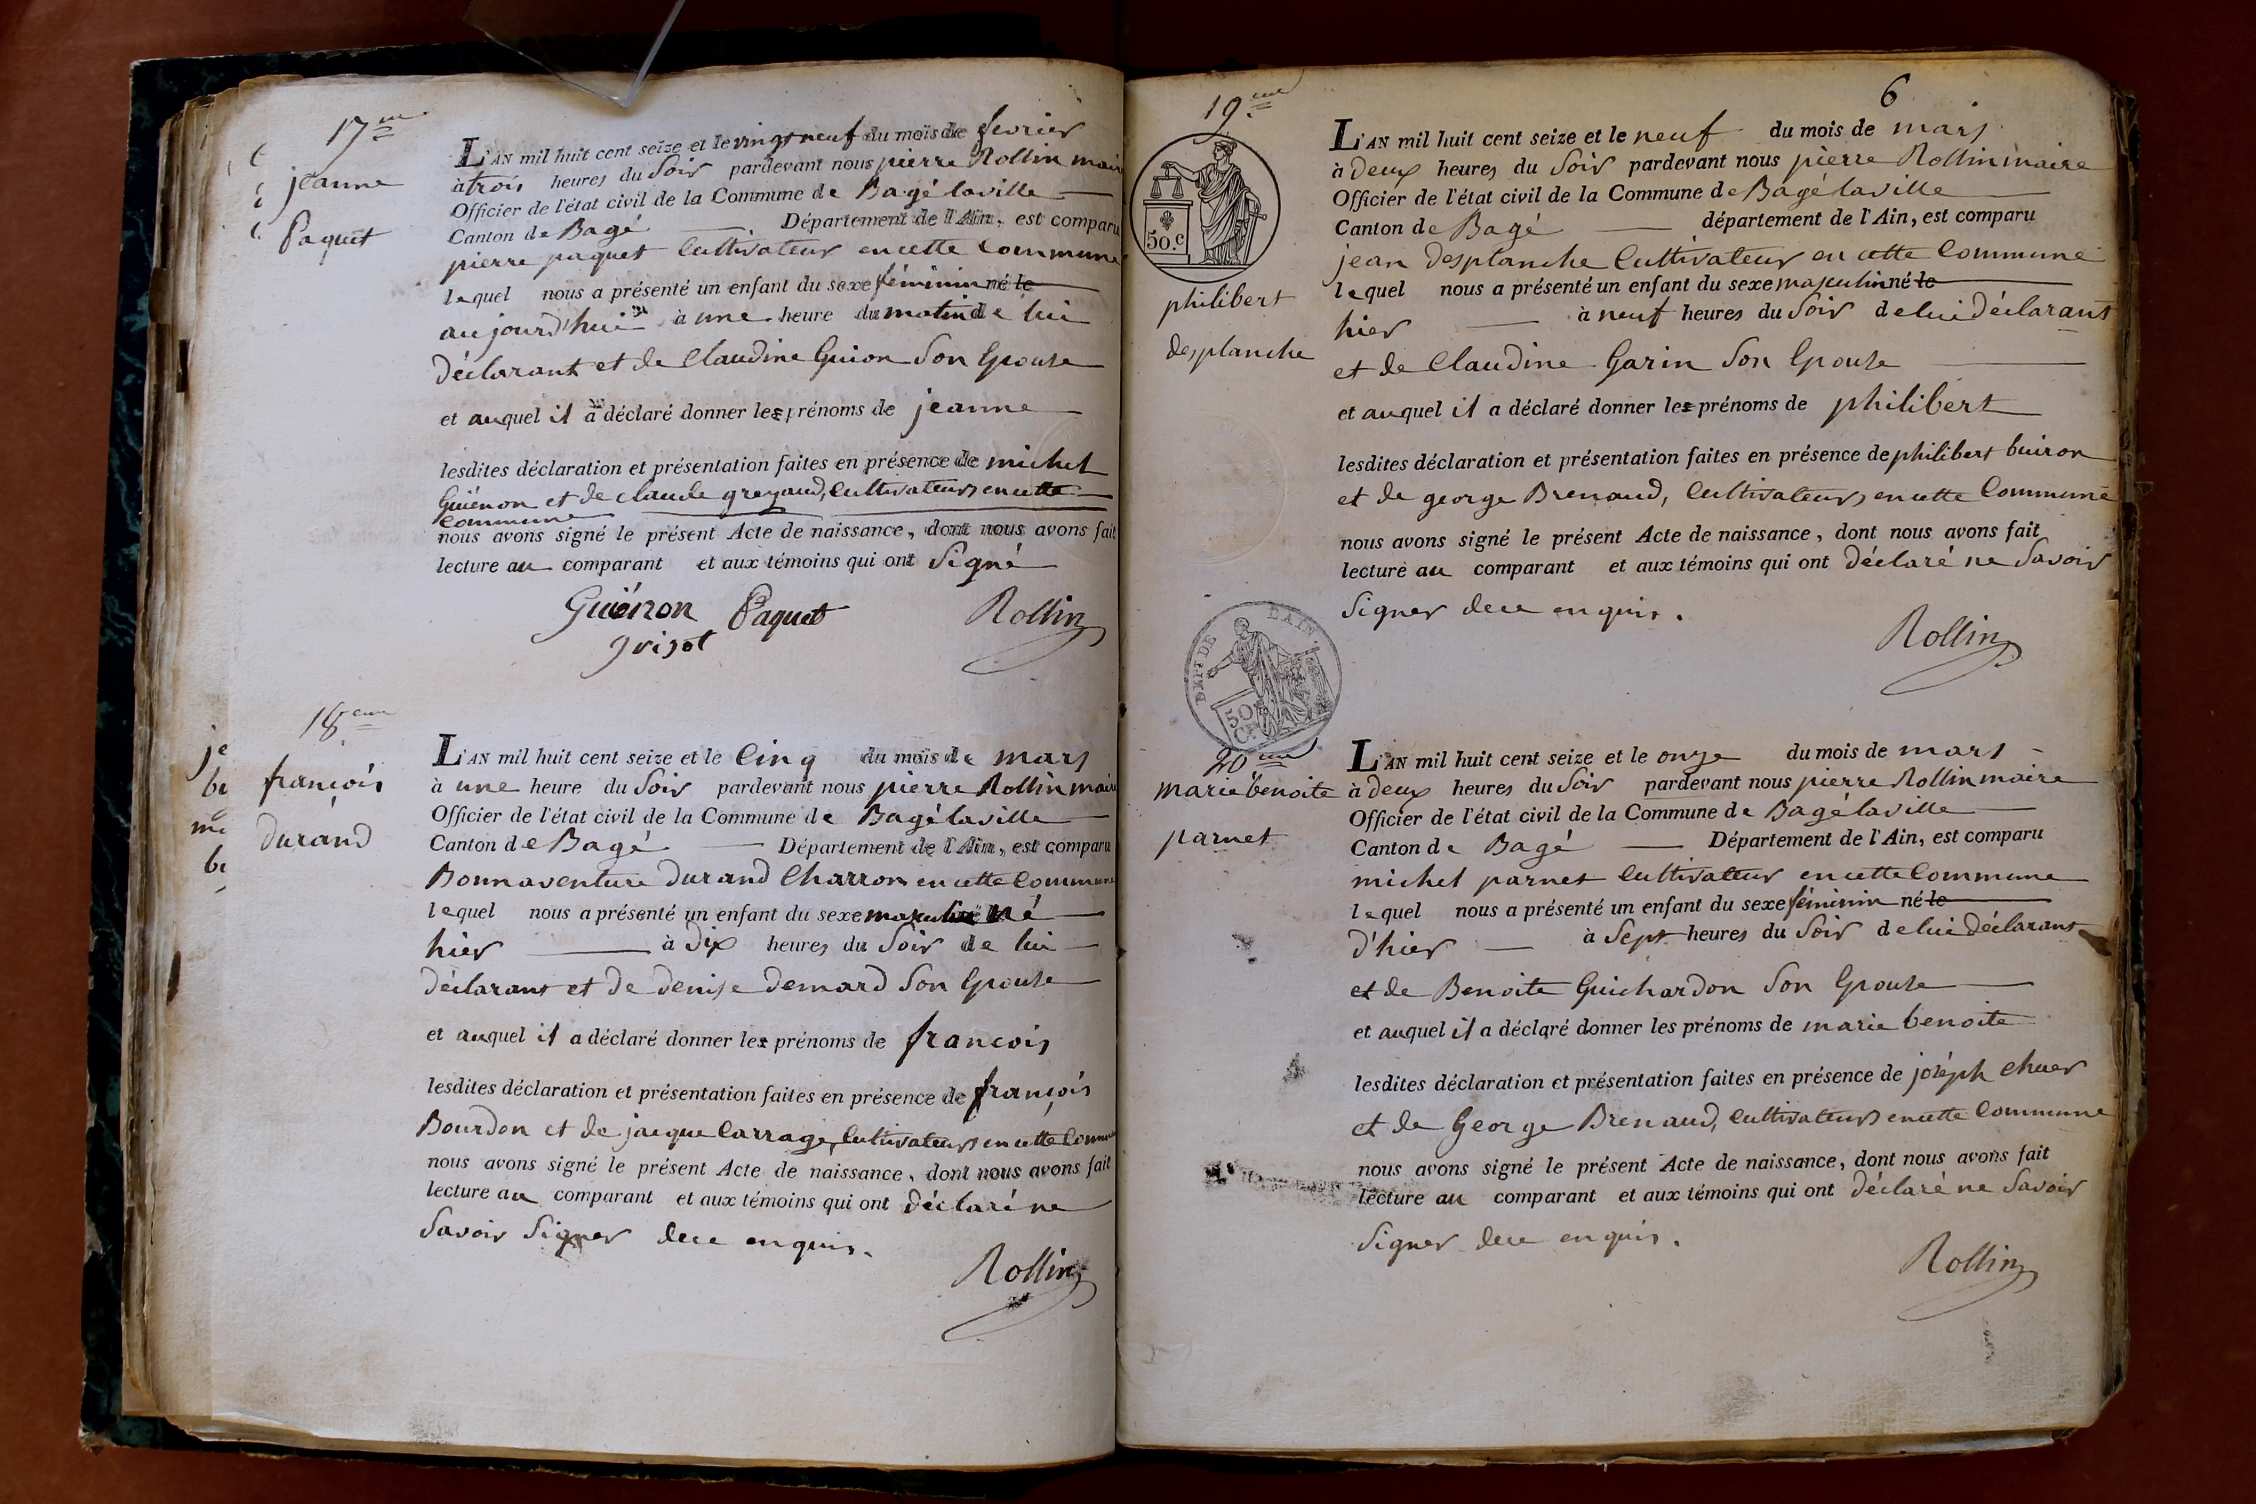 17me
jeanne
Paquet
L'AN mil huit cent seize et le vingt neuf du mois de fevrier
à trois heures du Soir pardevant nous pierre Rollin maire
Officier de l'état civil de la Commune de Bagé laville
Canton de Bagé Département de l'Ain, est comparu
pierre paquet Cultivateur en cette Commune
lequel nous a présenté un enfant du sexe féminin né le
aujourd'hui à une heure du matin de lui
déclarant et de Claudine Guion Son Epouse
et auquel il a déclaré donner les prénoms de jeanne
lesdites déclaration et présentation faites en présence de michel
Guiénon et de claude greyaud, Cultivateurs en cette
Commune
nous avons signé le présent Acte de naissance, dont nous avons fait
lecture au comparant et aux témoins qui ont Signé
Guiénon Paquet Rollin
grisot
18eme
je
françois
be
durand
me
be
L'AN mil huit cent seize et le Cinq du mois de mars
à une heure du Soir pardevant nous pierre Rollin maire
Officier de l'état civil de la Commune de Bagé laville
Canton de Bagé Département de l'Ain, est comparu
Bonnaventure durand Charron en cette Commune
lequel nous a présenté un enfant du sexe masculin né
hier à dix heures du Soir de lui
déclarant et de denise demard Son Epouse
et auquel il a déclaré donner les prénoms de francois
lesdites déclaration et présentation faites en présence de françois
Bourdon et de jacque Carrage, Cultivateurs en cette Commune
nous avons signé le présent Acte de naissance, dont nous avons fait
lecture au comparant et aux témoins qui ont déclaré ne
Savoir Signer de ce enquis.
Rollin
6
19eme
50.c
philibert
desplanche
L'AN mil huit cent seize et le neuf du mois de mars
à deux heures du Soir pardevant nous pierre Rollin maire
Officier de l'état civil de la Commune de Bagé laville
Canton de Bagé département de l'Ain, est comparu
jean desplanche Cultivateur en cette Commune
lequel nous a présenté un enfant du sexe masculin né le
hier à neuf heures du Soir de lui déclarant
et de Claudine Garin Son Epouse
et auquel il a déclaré donner les prénoms de philibert
lesdites déclaration et présentation faites en présence de philibert buiron
et de george Brenaud, Cultivateurs en cette Commune
nous avons signé le présent Acte de naissance, dont nous avons fait
lecture au comparant et aux témoins qui ont déclaré ne Savoir
Signer de ce enquis.
Rollin
DEPT DE L'AIN
50
20eme
marie benoite
parnet
L'AN mil huit cent seize et le onze du mois de mars
à deux heures du Soir pardevant nous pierre Rollin maire
Officier de l'état civil de la Commune de Bagé laville
Canton de Bagé Département de l'Ain, est comparu
michel parnet Cultivateur en cette Commune
lequel nous a présenté un enfant du sexe féminin né le
d'hier à Sept heures du Soir de lui déclarant
et de Benoite Guichardon Son Epouse
et auquel il a déclaré donner les prénoms de marie benoite
lesdites déclaration et présentation faites en présence de joséph chuer
et de George Brenaud, Cultivateurs en cette Commune
nous avons signé le présent Acte de naissance, dont nous avons fait
lecture au comparant et aux témoins qui ont déclaré ne Savoir
Signer de ce enquis.
Rollin